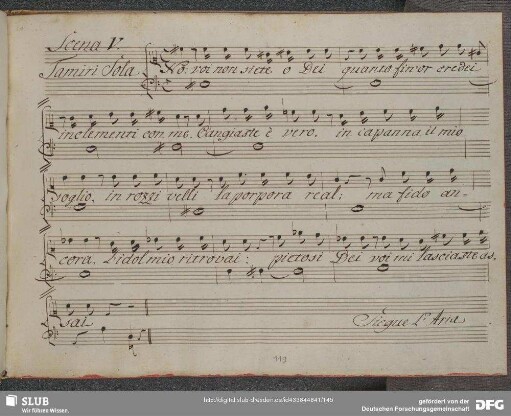 Scena V.
Tamiri Sola
No: voi non siete o Dei quanto fin'or credei
inclementi con me. Cangiaste è vero, in capanna il mio
soglio, in rozzi velli la porpora real; ma fido an-
cora. L'idol mio ritrovai: pietosi Dei voi mi lasciaste as,
sai
Siegue l'Aria
119
SLUB
Wir führen Wissen.
gefördert von der
Deutschen Forschungsgemeinschaft
DFG